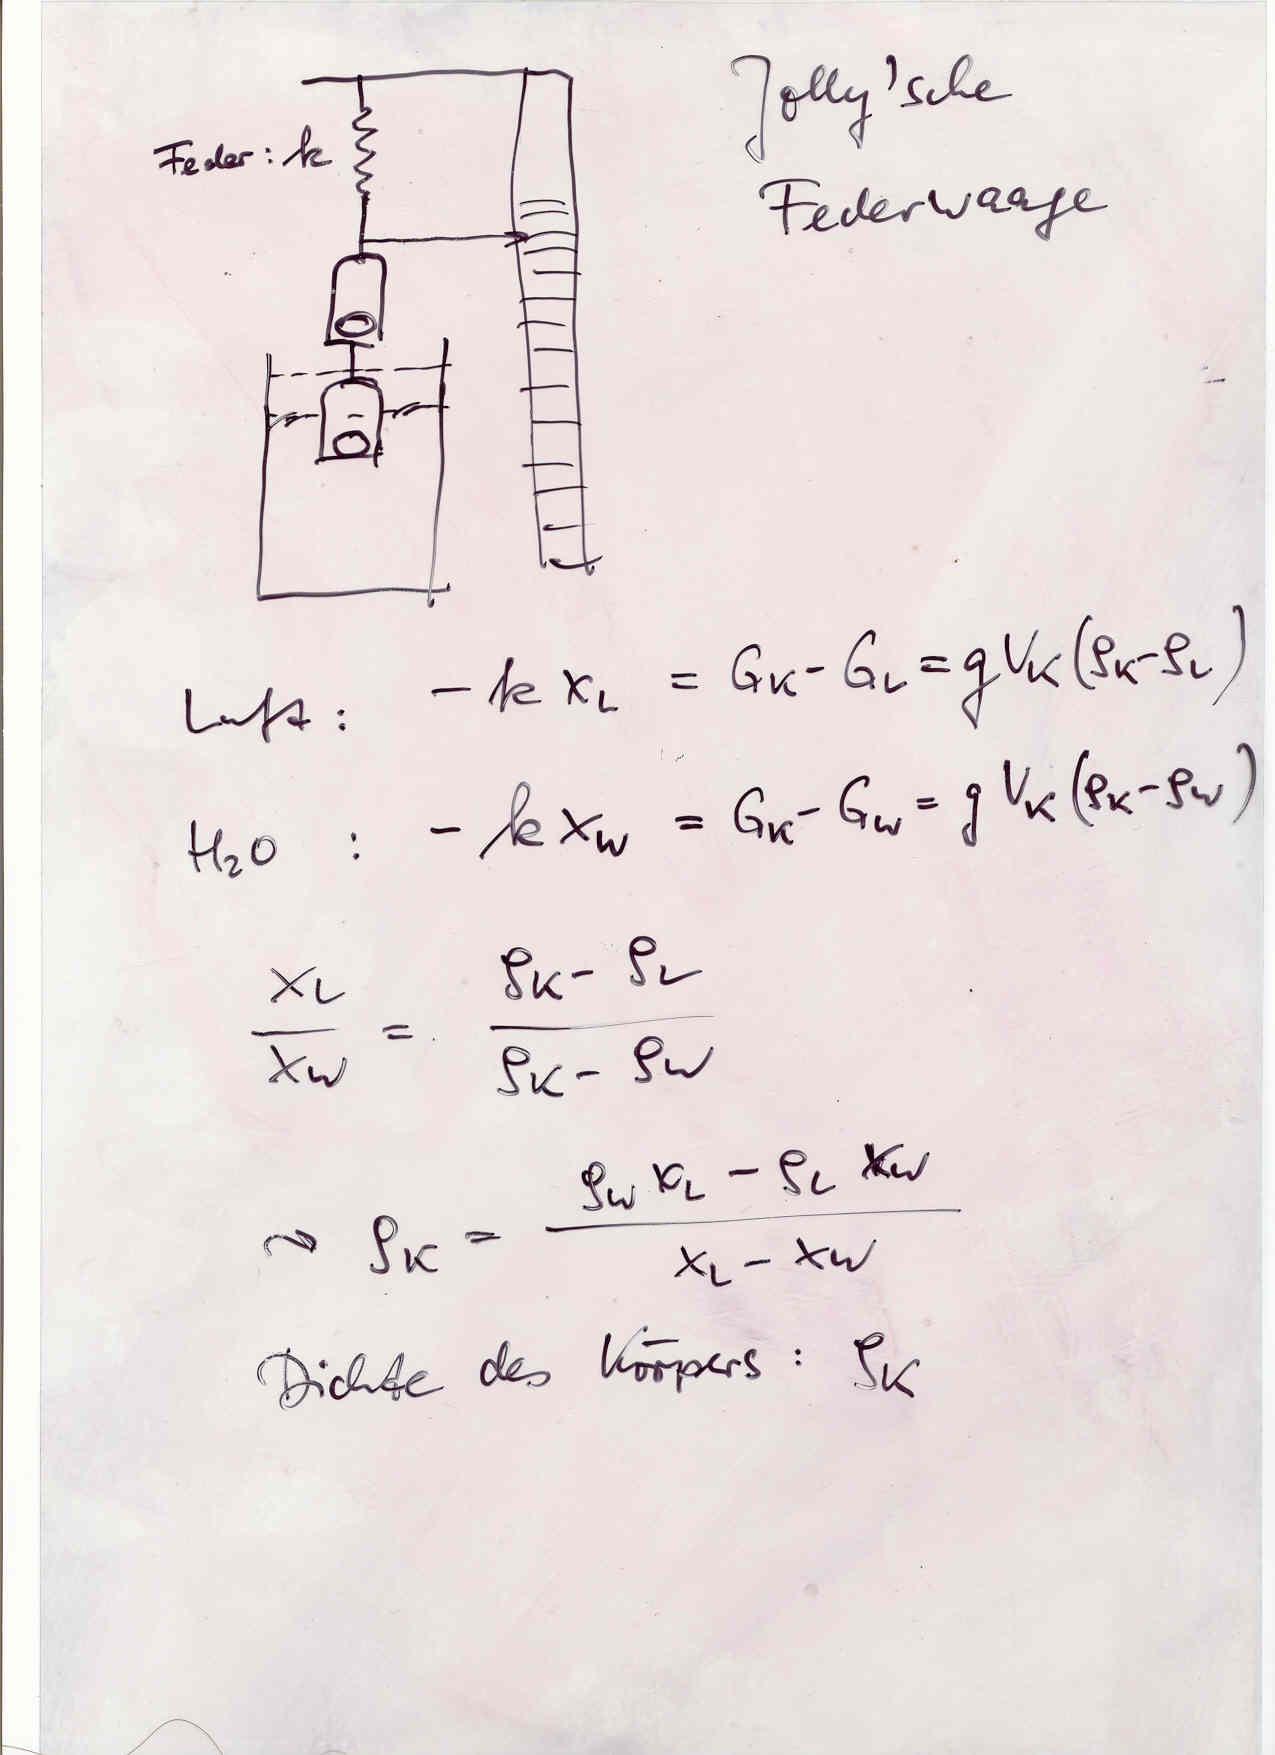 Jolly'sche
Federwaage
Feder: k
Luft: - k x_L = G_K - G_L = g V_K (ρ_K - ρ_L)
H₂O : - k x_W = G_K - G_W = g V_K (ρ_K - ρ_W)
x_L / x_W = (ρ_K - ρ_L) / (ρ_K - ρ_W)
⤳ ρ_K = (ρ_W x_L - ρ_L x_W) / (x_L - x_W)
Dichte des Körpers: ρ_K